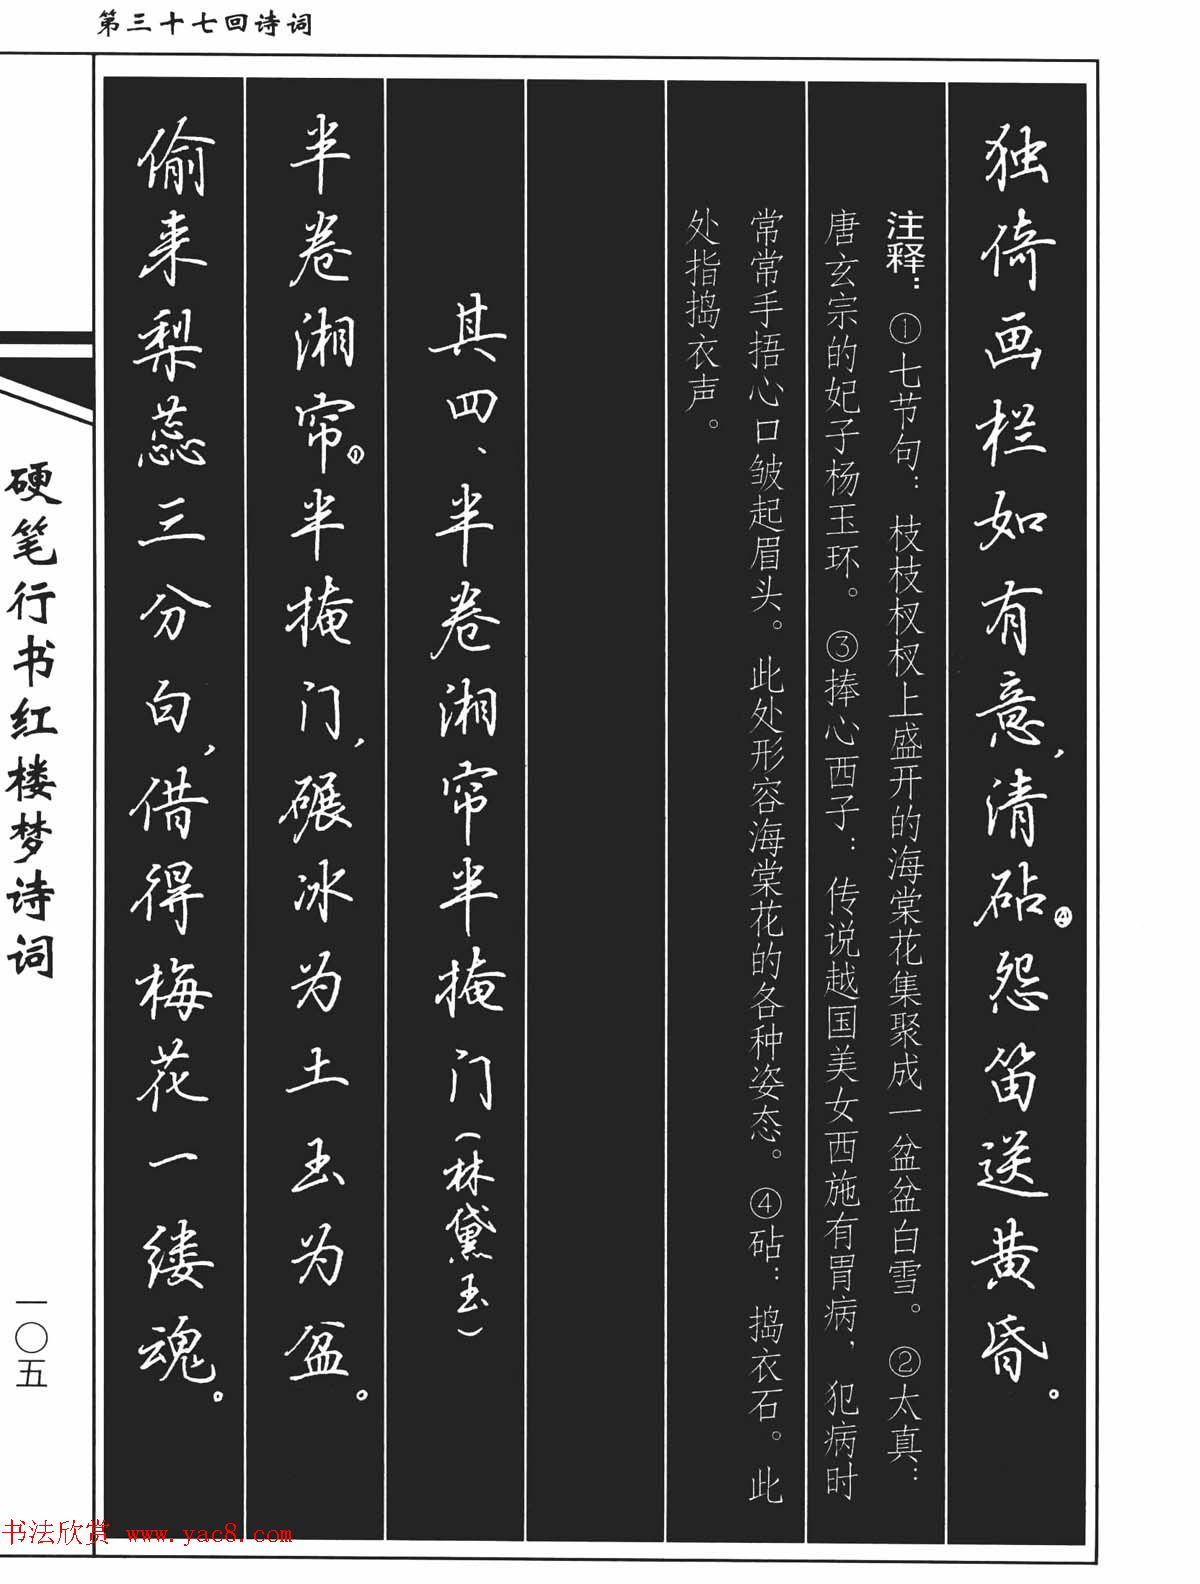 第三十七回诗词
独倚画栏如有意，清砧④怨笛送黄昏。
注释：①七节句：枝枝杈杈上盛开的海棠花集聚成一盆盆白雪。②太真：
唐玄宗的妃子杨玉环。③捧心西子：传说越国美女西施有胃病，犯病时
常常手捂心口皱起眉头。此处形容海棠花的各种姿态。④砧：捣衣石。此
处指捣衣声。
其四、半卷湘帘半掩门（林黛玉）
半卷湘帘①半掩门，碾冰为土玉为盆。
偷来梨蕊三分白，借得梅花一缕魂。
硬笔行书红楼梦诗词
一〇五
书法欣赏 www.yac8.com